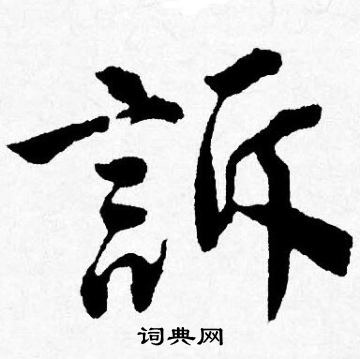 訴
词典网